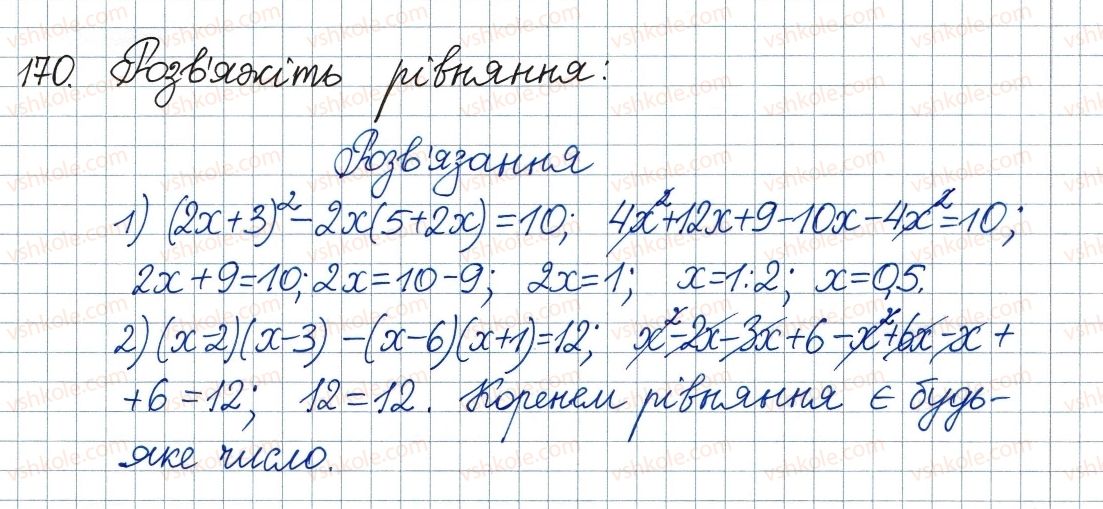 170. Розв'яжіть рівняння:
Розв'язання
1) (2x+3)²-2x(5+2x)=10; 4x²+12x+9-10x-4x²=10;
2x+9=10; 2x=10-9; 2x=1; x=1:2; x=0,5.
2) (x-2)(x-3)-(x-6)(x+1)=12; x²-2x-3x+6-x²+6x-x+
+6=12; 12=12. Коренем рівняння є будь-
яке число.